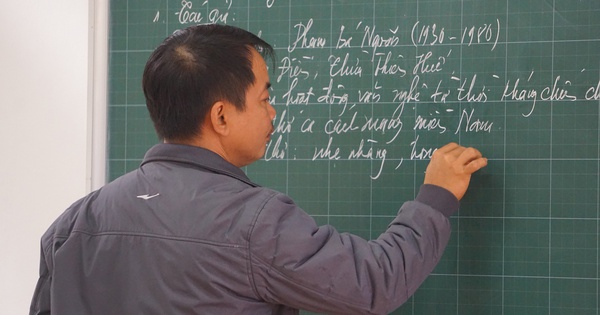 1. Tác giả:
- Phạm Bá Ngoãn (1930 - 1980)
Điền, Thừa Thiên Huế
hoạt động văn nghệ từ thời kháng chiến
ca cách mạng miền Nam.
nhẹ nhàng,